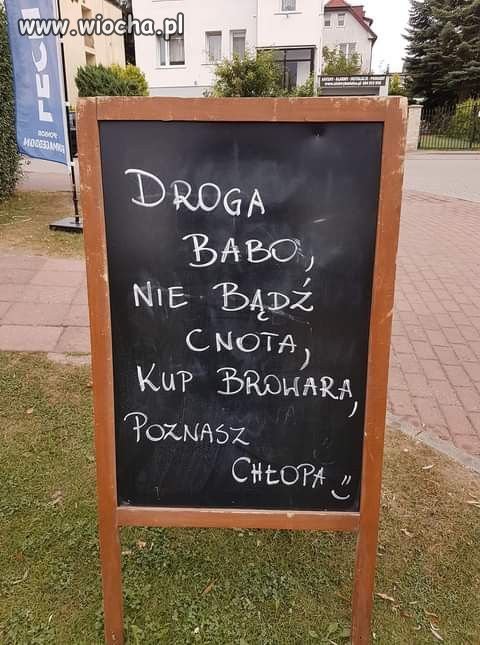 www.wiocha.pl
DROGA
BABO,
NIE BĄDŹ
CNOTA,
KUP BROWARA,
POZNASZ
CHŁOPA